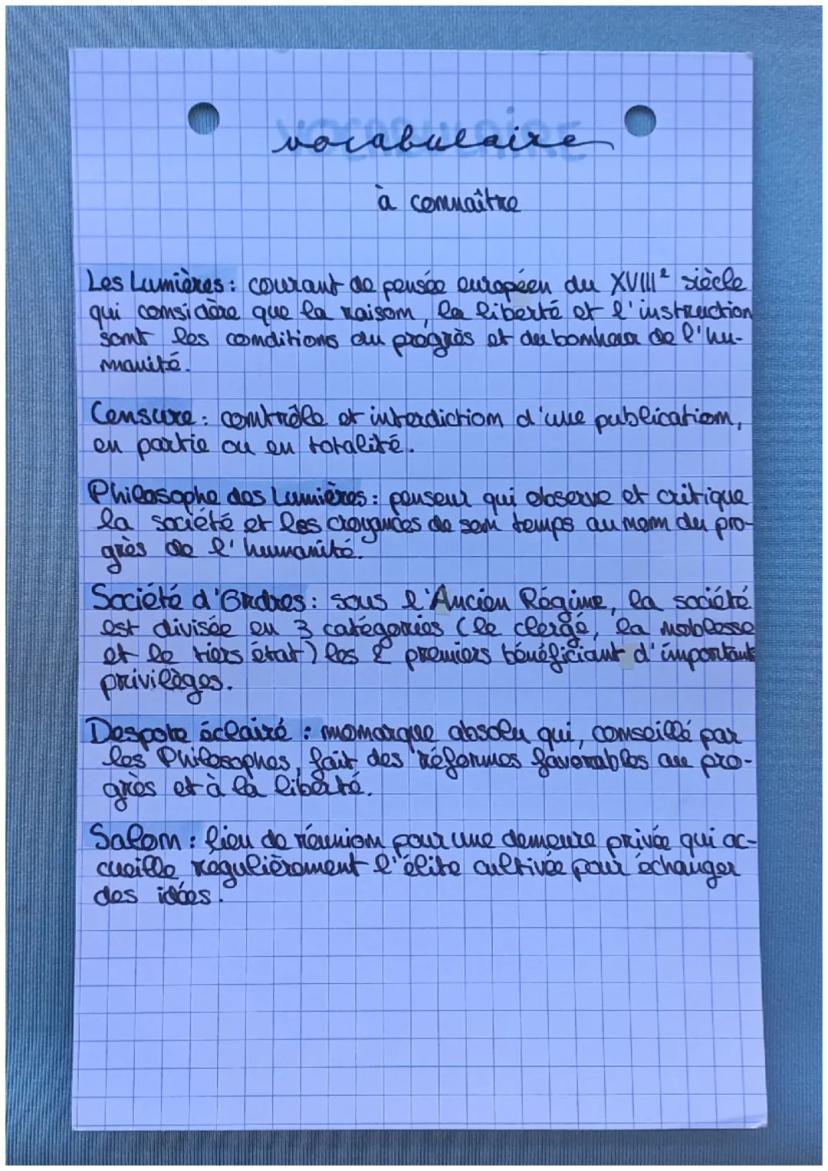 vocabulaire
à connaître
Les Lumières : courant de pensée européen du XVIIIe siècle
qui considère que la raison, la liberté et l'instruction
sont les conditions du progrès et du bonheur de l'hu-
manité.
Censure : contrôle et interdiction d'une publication,
en partie ou en totalité.
Philosophe des Lumières : penseur qui observe et critique
la société et les croyances de son temps au nom du pro-
grès de l'humanité.
Société d'Ordres : sous l'Ancien Régime, la société
est divisée en 3 catégories (le clergé, la noblesse
et le tiers état) les 2 premiers bénéficiant d'important
privilèges.
Despote éclairé : monarque absolu qui, conseillé par
les Philosophes, fait des réformes favorables au pro-
grès et à la liberté.
Salon : lieu de réunion pour une demeure privée qui ac-
cueille régulièrement l'élite cultivée pour échanger
des idées.